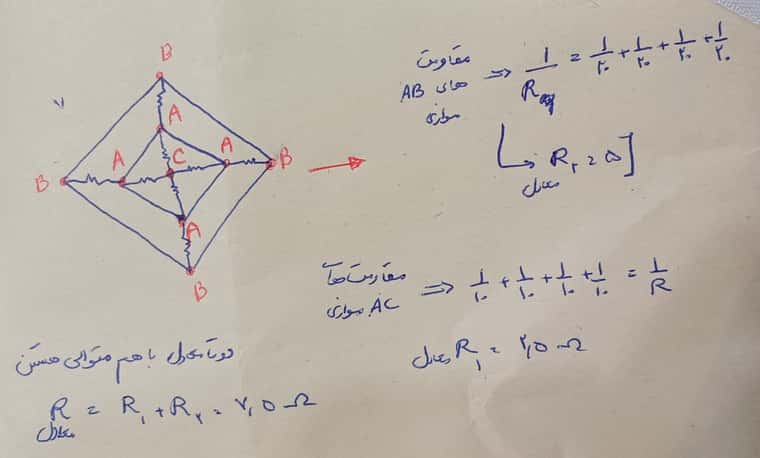 B
A
A
C
A
B
B
A
B
مقاومت
های AB
موازی
⇒ 1/R = 1/۲۰ + 1/۲۰ + 1/۲۰ + 1/۲۰
R₂ = ۵
معادل
مقاومت‌ها
AC موازی ⇒ 1/۱۰ + 1/۱۰ + 1/۱۰ + 1/۱۰ = 1/R
معادل R₁ = ۲,۵ Ω
دو تا معادل با هم متوالی هستن
R معادل = R₁ + R₂ = ۷,۵ Ω